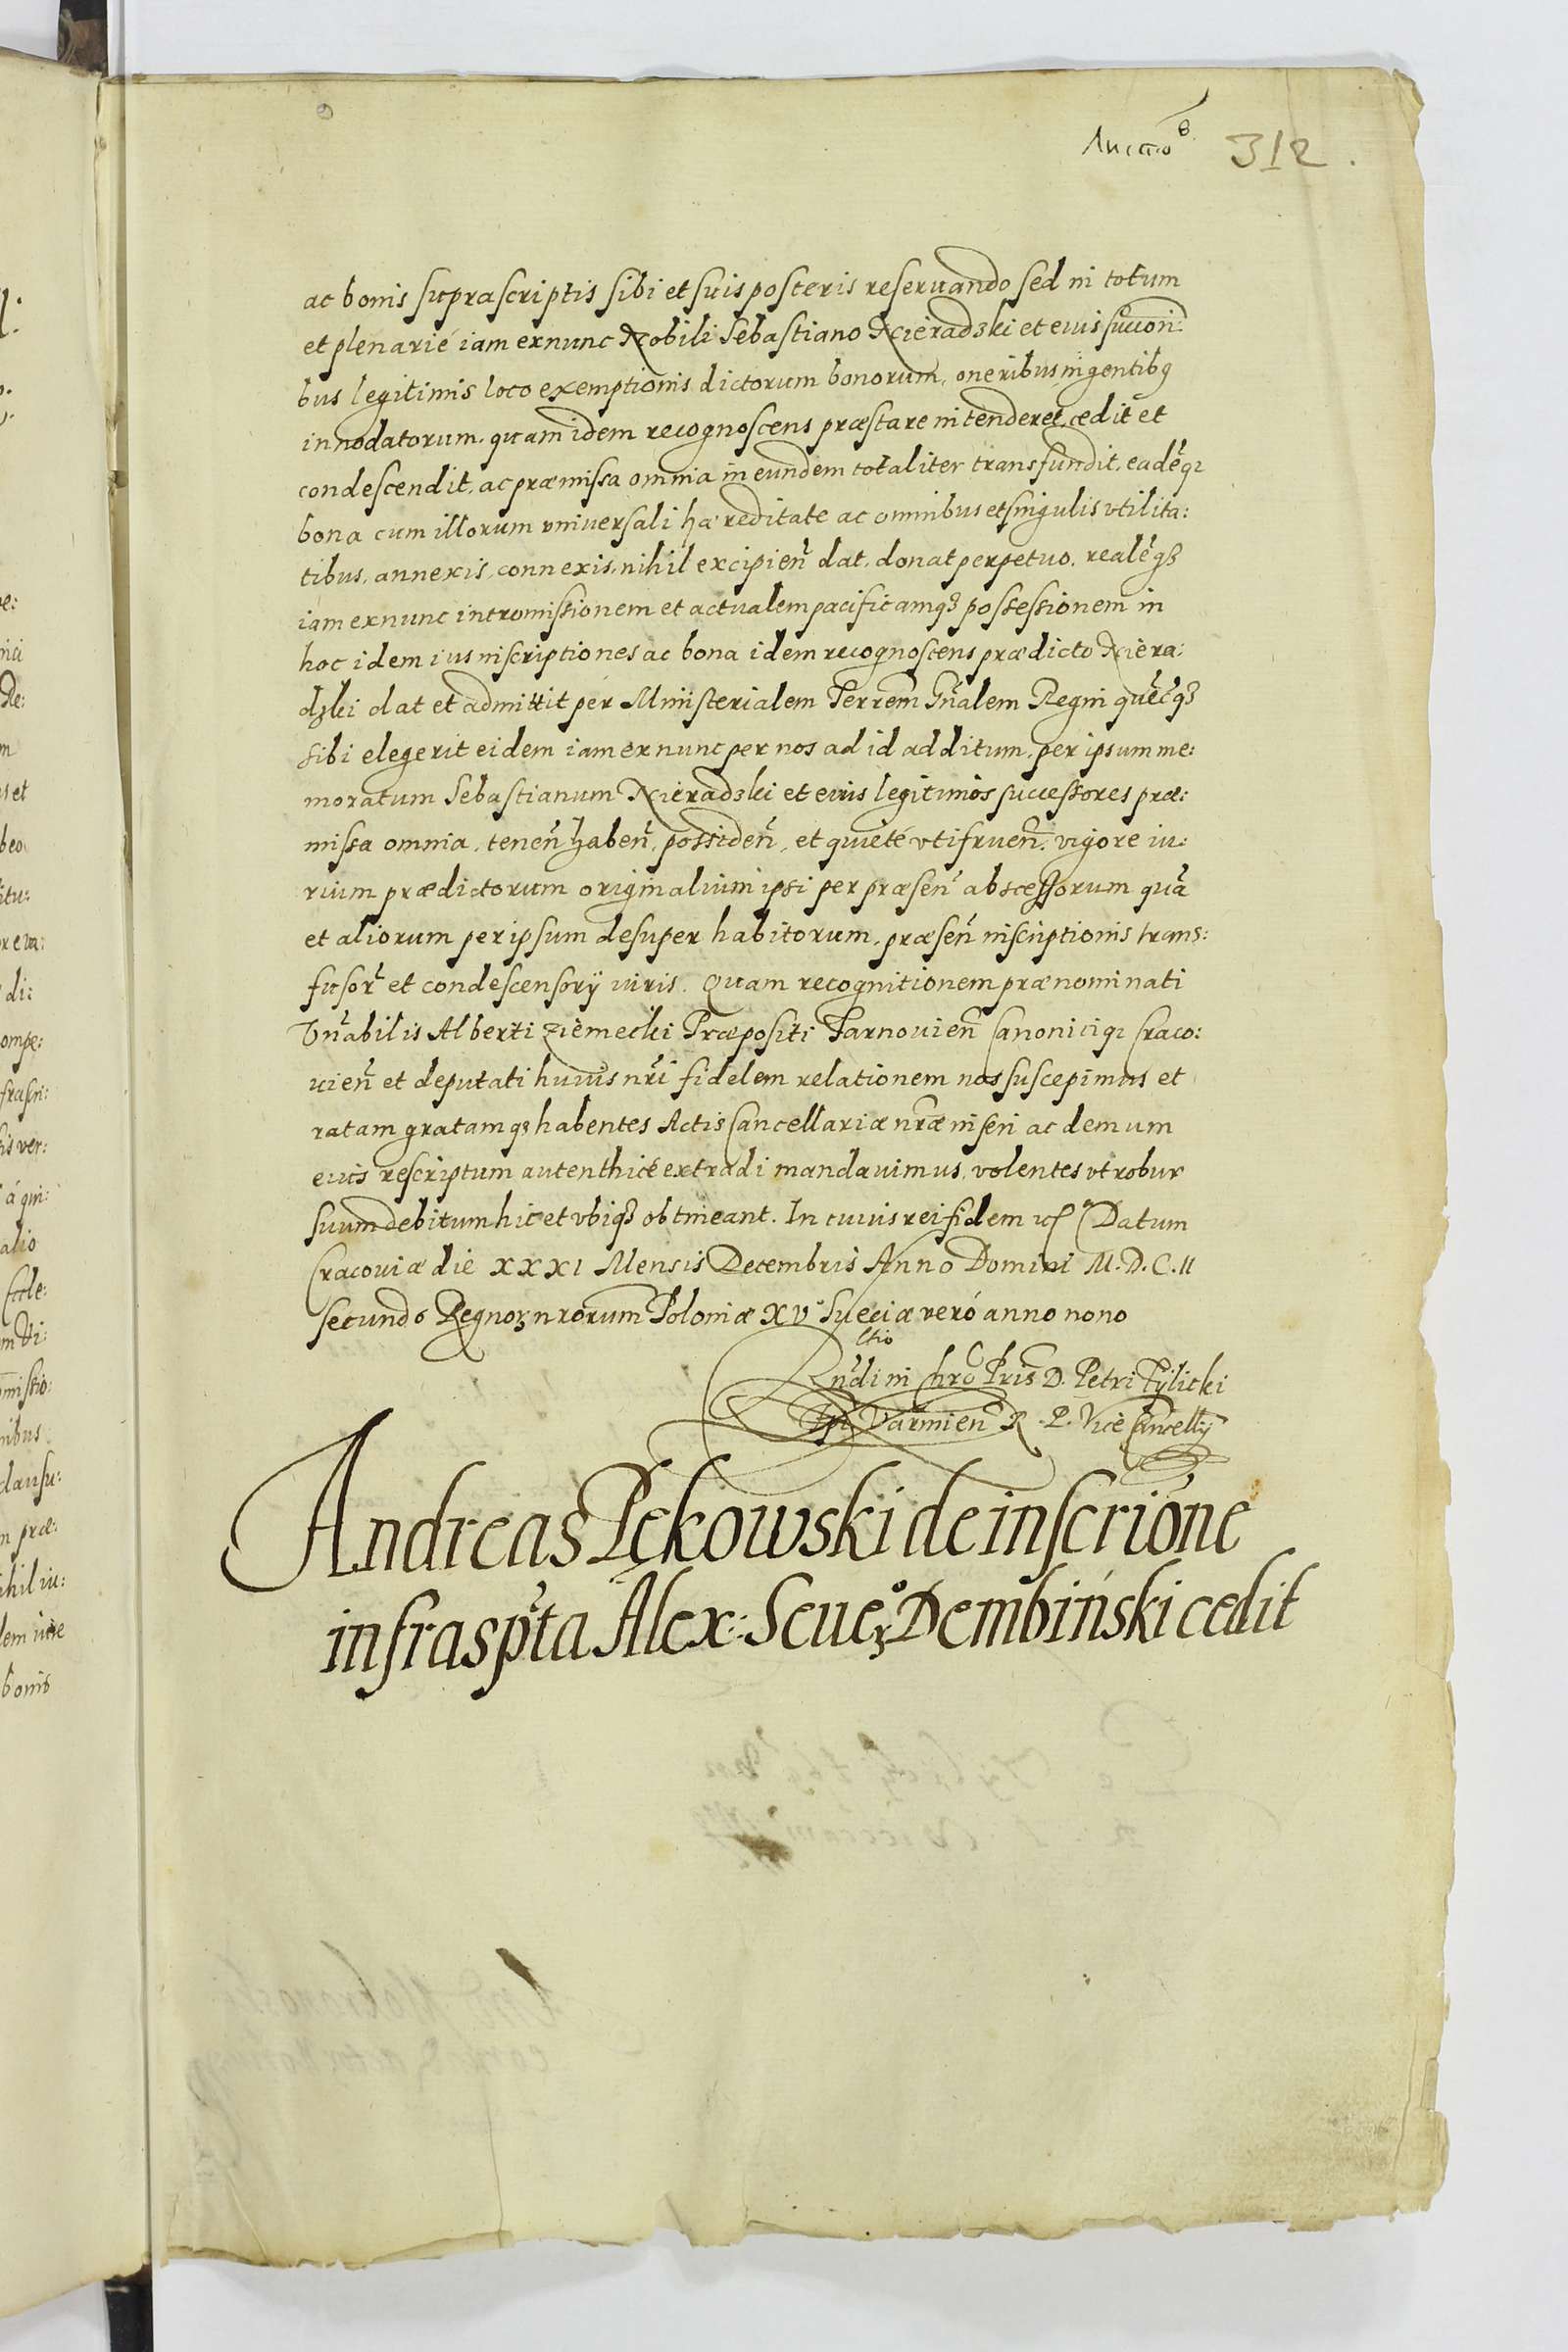 Листов 312.
ac bonis suprascriptis sibi et suis posteris reseruando sed in totum
et plenarié iam exnunc Nobili Sebastiano Nieradski et eius succon̄
bus legitimis loco exemptionis dictorum bonorum, oneribus ingentibꝗ
innodatorum. quam idem recognoscens præstare intenderet, cedit et
condescendit, ac præmissa omnia in eundem totaliter transfundit, eadēqꝫ
bona cum illorum vniuersali hæreditate ac omnibus et singulis vtilita:
tibus, annexis, connexis, nihil excipien̄ dat, donat perpetuo, realēqꝫ
iam exnunc intromissionem et actualem pacificamqꝫ possessionem in
hoc idem ius inscriptiones ac bona idem recognoscens prædicto Niera:
dzki dat et admittit per Ministerialem Terrem̄ Gn̄alem Regni quēcqꝫ
sibi elegerit eidem iam exnunc per nos ad id additum, per ipsum me:
moratum Sebastianum Nieradski et eius legitimos successores præ:
missa omnia, tenen̄ haben̄, possiden̄, et quieté vtifruen̄. vigore iu:
rium prædictorum originalium ipsi per præsen̄ abscessorum quā
et aliorum per ipsum desuper habitorum, præsen̄ inscriptionis trans:
fusor̄ et condescensorÿ iuris. Quam recognitionem prænominati
Vn̄abilis Alberti Ziemecki Præpositi Tarnouien̄ Canoniciqꝫ Craco:
uien̄ et deputati huius nr̄i fidelem relationem nos suscepimus et
ratam gratamqꝫ habentes Actis Cancellariæ nr̄æ inseri ac demum
eius rescriptum autenthicé extradi mandauimus, volentes vt robur
suum debitum hic et vbiqꝫ obtineant. In cuius rei fidem Datum
Cracouiæ die XXXI Mensis Decembris Anno Domini M.D.C.II
secundo Regnoꝝ nrorum Poloniæ XV° Sueciæ veró anno nono
Ctio
Rn̄di in Chrō Pris D. Petri Tÿlicki
Varmien̄ R. P. Vice Cancellÿ
Andreas Pękowski de inscrióne
infraspt̄a Alex: Seueꝝ° Dembiński cedit